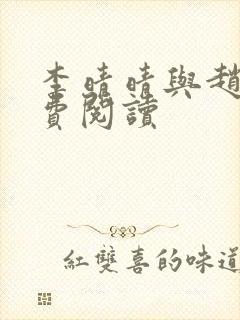 李晴晴與趙
費閱讀
紅雙喜的味道